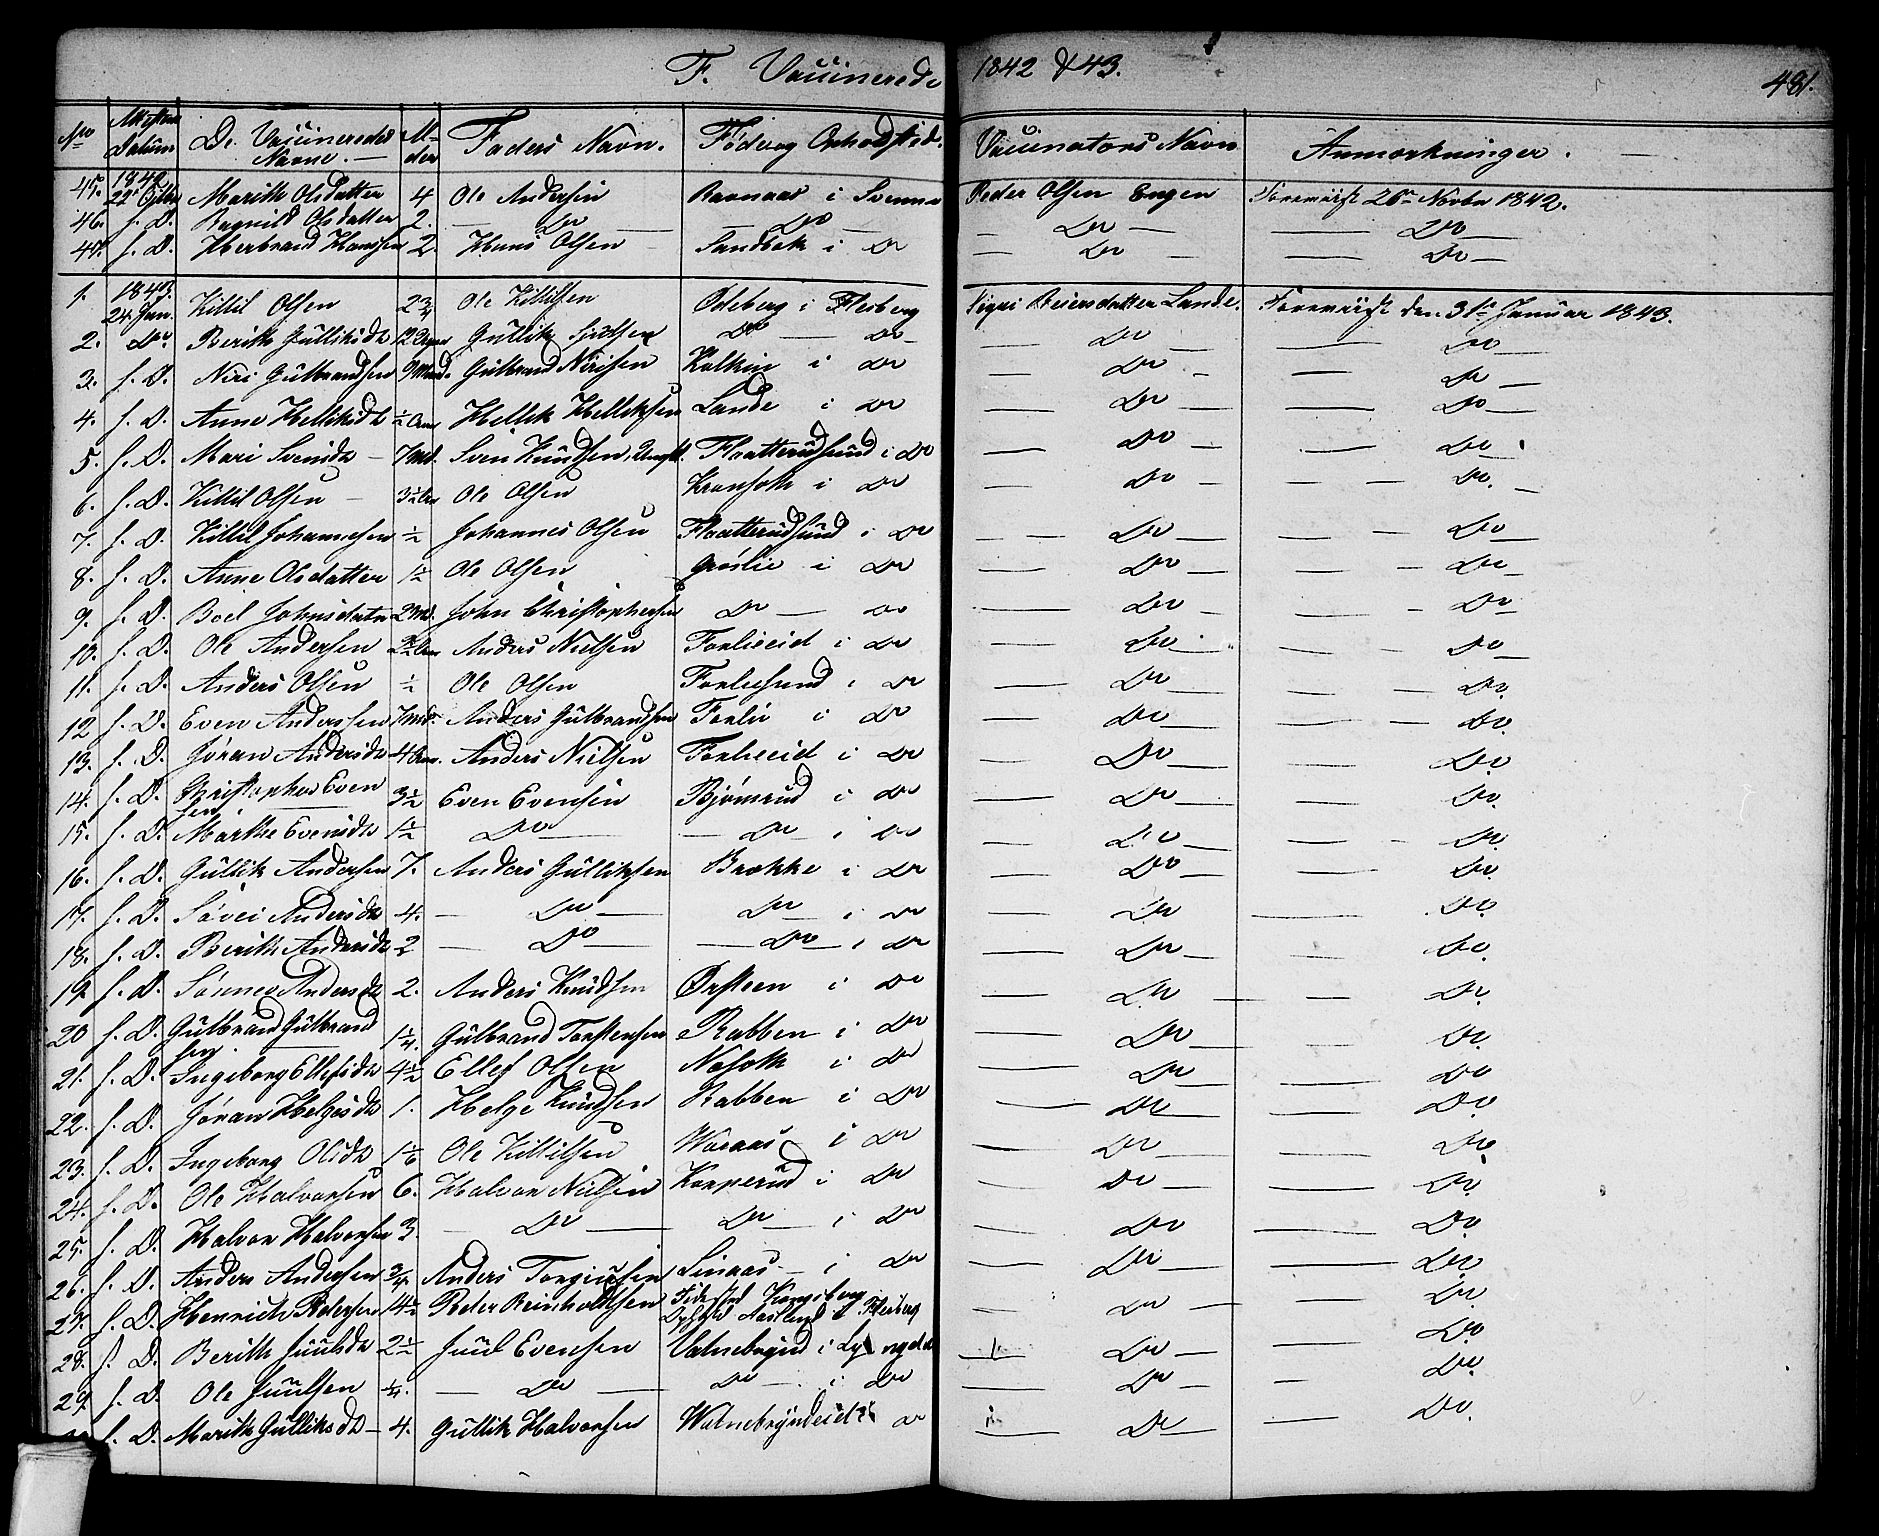 F. Vaccinerede 1842 & 43. 481.
No Attestens Datum De Vaccineredes Navne. Alder Faders Navn. Føde og Opholdssted. Vaccinators Navn Anmærkninger.
45. 1842 22de Marith Olsdatter 4 Ole Andersen Ravnaas i Svenne Peder Olsen Engen Foreviist 26de Novbr 1842.
46. f. D. Ragnild Olsdatter 2. — Do — — Do — — Do — — Do —
47. f. D. Herbrand Hansen 2. Hans Olsen Sandbæk i Do — Do — — Do —
1. 1843. 24 Jan. Killil Olsen 2 3/4 Ole Killilsen Odeberg i Flesberg Sigri Reiersdatter Lande. Foreviist den 31te Januar 1843.
2. Do Berith Gulliksdtr Gullik Juulsen Do — Do — Do — — Do —
3. f. D. Niri Gulbrandsen 9 Mnd. Gulbrand Nirisen Kolkin i Do — Do — — Do —
4. f. D. Anne Helliksdtr 1/2 Aar Hellik Helliksen Lande i Do — Do — — Do —
5. f. D. Mari Svensdtr — 7 Md. Sven Knudsen, Flaatterudsund i Do — Do — Do
6. f. D. Killil Olsen — 3 1/2 Aar Ole Olsen i Do — Do — — Do. —
7. f. D. Killil Johannesen 1/2 Johannes Olsen Flaatterudsund i Do — Do — — Do —
8. f. D. Anne Olsdatter 1 1/2 Ole Olsen Gråslie i Do — Do — — Do —
9. f. D. Boel Johnsdatr 2 Md. John Christophersen Do — Do — Do — — Do —
10. f. D. Ole Andersen Anders Nielsen Forlieeid i Do — Do — — Do —
11. f. D. Anders Olsen 1/2 Ole Olsen Forliesund i Do — Do — — Do.
12 f. D. Even Anderssen 7 Md. Anders Gulbrandsen Forlie i Do — Do — — Do.
13. f. D. Jøran Andersdtr 4 Aar. Anders Nielsen Forlieeid i Do — Do — Do.
14. f. D. Christopher Even 3 1/2 Even Evensen Bjørnsrud i Do — Do — — Do.
sen
15. f. D. Marthe Evensdtr 1 1/2 Do — — Do — i Do — Do — — Do.
16. f. D. Gullik Andersen 7. Anders Gulliksen Brække i Do — Do — — Do.
17. f. D. Søvei Andersdtr 4. — Do — Do — i Do — Do — Do.
18. f. D. Berith Andersdtr 2 — Do — Do — i Do — Do — — Do.
19. f. D. Sønnev Andersdtr 2. Anders Knudsen Ørsteen i Do — Do — — Do.
20 f. D. Gulbrand Gulbrand 1 1/4. Gulbrand Torstensen Rabben i Do — Do — — Do.
sen. —
21. f. D. Ingeborg Ellefsdtr 4 1/2 Ellef Olsen i Do — Do — Do
22. f. D. Jøran Helgesdtr 1. Helge Knudsen Rabben i Do — Do — Do.
23. f. D. Ingeborg Olsdtr 1 1/6 Ole Killilsen Waraas — i Do — Do — — Do
24. f. D. Ole Halvorsen 6. Halvor Nielsen Korperud i Do — Do — — Do.
25. f. D. Halvor Halvorsen 3. — Do — Do — i Do — Do — Do.
26. f. D. Anders Andersen 3/4 Anders Torgiusen Linaas — i Do — Do — — Do.
27. f. D. Henrich Pedersen 14 1/2 Peder Reinholdtsen Fødested Kongsberg Opholds Aasland i Flesberg — Do — — Do.
28. f. D. Berith Juulsdtr 2 1/2 Juul Evensen Valnebrynd i Lyngdal — Do — — Do.
29. f. D. Ole Juulsen 1/4. — Do — Do — i Do — Do — — Do.
f. D. Marith Gulliksdtr — 4. Gullik Halvorsen Walnebryndeid i Do — Do — — Do.